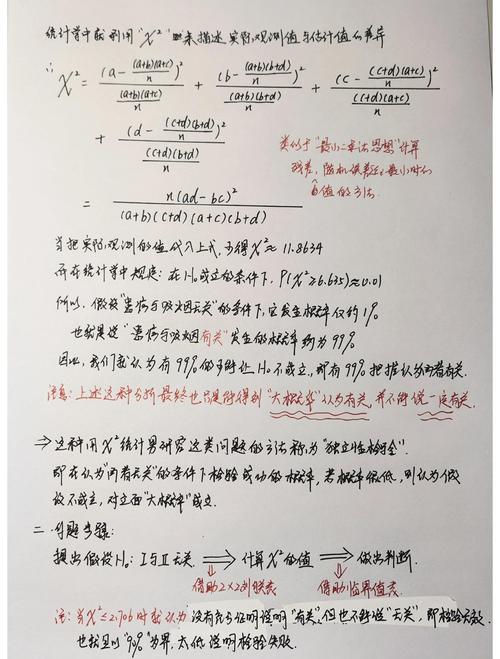 统计学中就利用"χ²"来描述实际观测值与估计值的差异
∴ χ² = (a - (a+b)(a+c)/n)² / ((a+b)(a+c)/n) + (b - (a+b)(b+d)/n)² / ((a+b)(b+d)/n) + (c - (c+d)(a+c)/n)² / ((c+d)(a+c)/n)
+ (d - (c+d)(b+d)/n)² / ((c+d)(b+d)/n)
类似于"最小二乘法思想"计算
残差,随机误差 最小时的
值的方法.
= n(ad-bc)² / (a+b)(c+d)(a+c)(b+d)
当把实际观测的值代入上式,可得χ²≈11.8634
而在统计学中规定:在H₀成立的条件下,P(χ²≥6.635)≈0.01
所以,假设"患病与吸烟无关"的条件下,它发生概率仅约1%
也就是说"患病与吸烟有关"发生的概率约为99%
因此,我们就认为有99%的可能让H₀不成立,即有99%把握认为两者有关.
注意:上述这种分析最终也只是能得到"大概率"认为有关,并不能说一定有关.
⇒这种用χ²统计量研究这类问题的方法称为"独立性检验".
即在认为"两者无关"的条件下检验成功的概率,若概率很低,则认为假
设不成立,对立面"大概率"成立.
二 解题步骤:
提出假设H₀:Ⅰ与Ⅱ无关 ⟹ 计算χ²的值 ⟹ 做出判断.
借助2×2列联表 借助临界值表
注:当χ²≤2.706时就认为没有充分证明说明"有关",但也不能说"无关",即检验失效.
也就是以"90%"为界,太低说明检验失败.